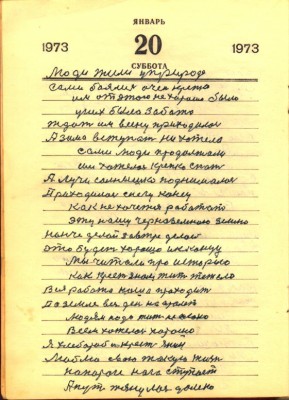 ЯНВАРЬ
1973 20 1973
СУББОТА
Люди жили у природе
сами боялись
им от этого не хорошо было
у них было забота
Ждать им весну приходилось
А зима вступать ни хотела
сами люди продолжали
им хотелось крепко спать
А лучи солнышка поднимались
Приходилось снегу конец
Как не хочется работать
эту нашу черноземною землю
нынче делай завтра делай
это будет хорошо
Мы читали про историю
как крестьянам жить тяжело
Вся работа наша проходит
По земле весь день
Людям надо жить
Всем хотелось хорошо
Я хлебороб и крестьянин
Люблю свою жизнь
нога ступает
А путь далеко